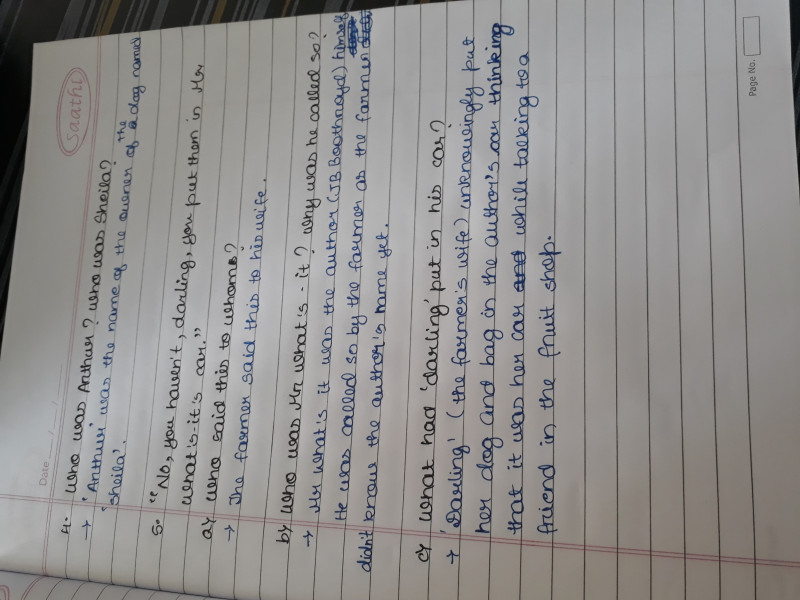 Saathi
Date __/__/__
4. Who was Arthur? Who was Sheila?
→ 'Arthur' was the name of the owner of the dog named
'Sheila'.
5. "No, you haven't, darling, you put them in Mr
What's-it's car."
a) Who said this to whom?
→ The farmer said this to his wife.
b) Who was Mr What's-it? Why was he called so?
→ Mr What's it was the author (JB Boothroyd) himself
He was called so by the farmer as the farmer
didn't know the author's name yet.
c) What had 'darling' put in his car?
→ 'Darling' (the farmer's wife) unknowingly put
her dog and bag in the author's car thinking
that it was her car while talking to a
friend in the fruit shop.
Page No.